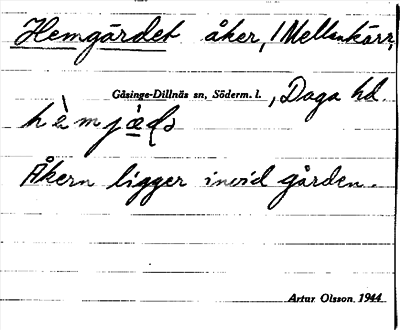 Hemgärdet åker, 1 Mellankärr,
Gåsinge-Dillnäs sn, Söderm. l., Daga hd.
Åkern ligger invid gården.
Artur Olsson. 1944